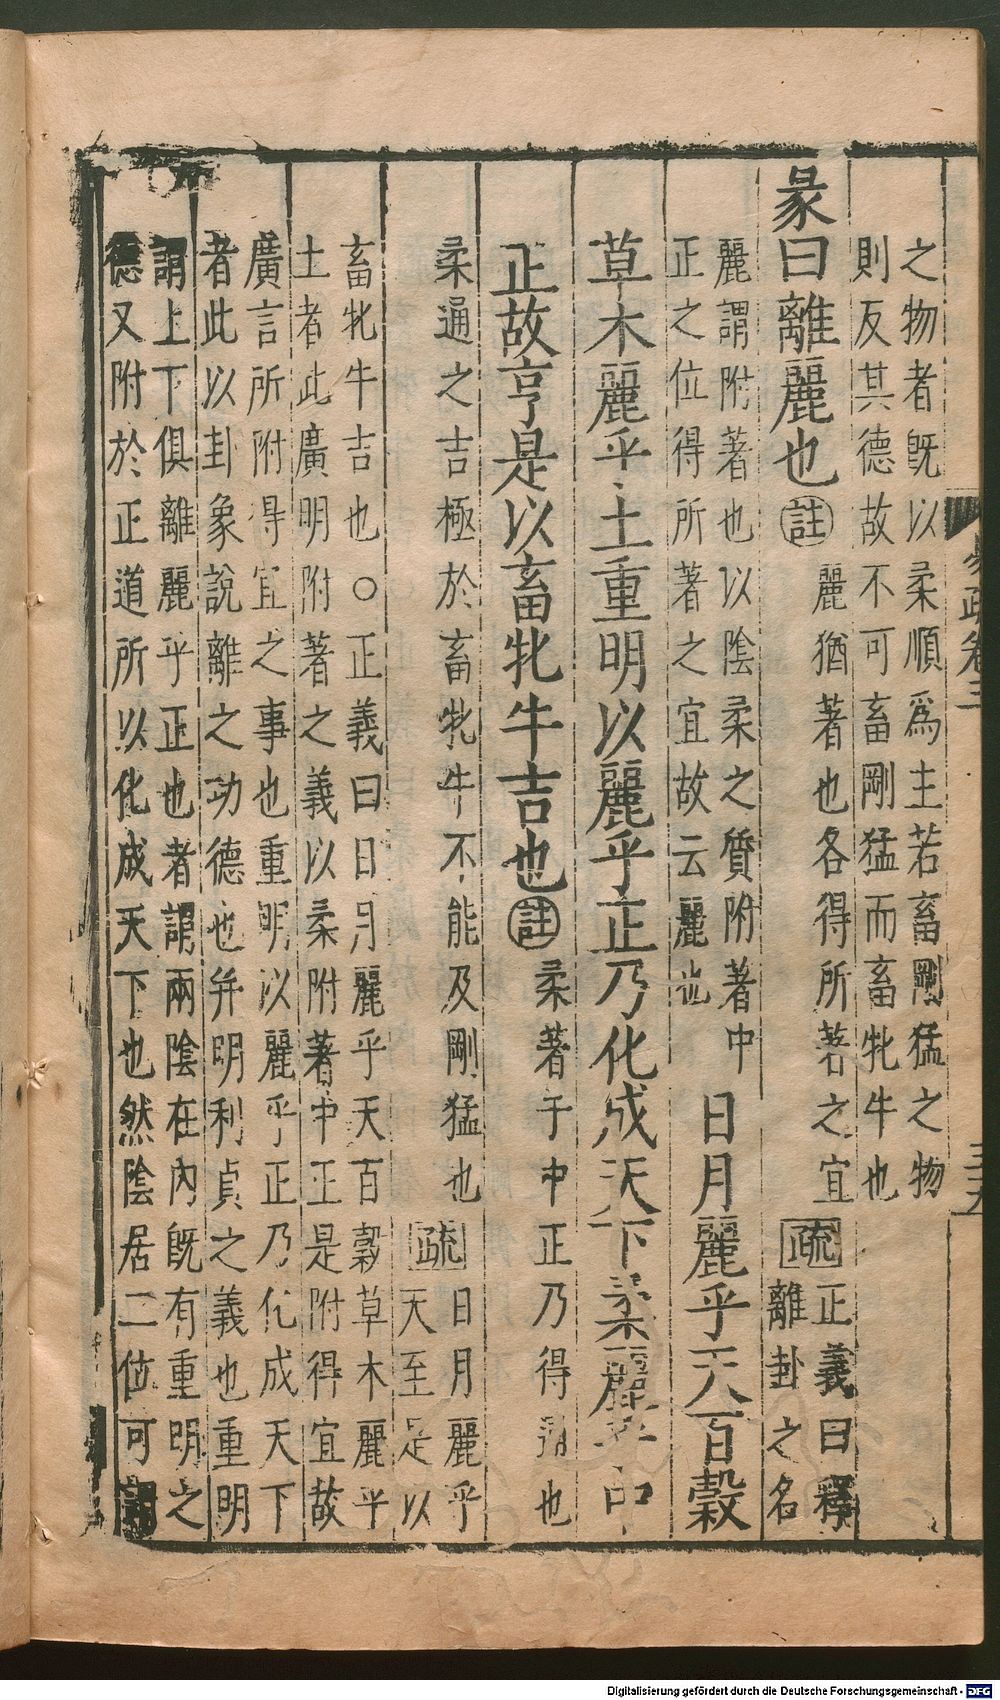 之物者既以柔順爲主若畜剛猛之物
則反其德故不可畜剛猛而畜牝牛也
彖曰離麗也
註
麗猶著也各得所著之宜
疏
正義曰釋
離卦之名
麗謂附著也以陰柔之質附著中
正之位得所著之宜故云麗也
日月麗乎天百穀
草木麗乎土重明以麗乎正乃化成天下柔麗乎中
正故亨是以畜牝牛吉也
註
柔著于中正乃得通也
柔通之吉極於畜牝牛不能及剛猛也
疏
日月麗乎
天至是以
畜牝牛吉也○正義曰日月麗乎天百穀草木麗乎
土者此廣明附著之義以柔附著中正是附得宜故
廣言所附得宜之事也重明以麗乎正乃化成天下
者此以卦象說離之功德也并明利貞之義也重明
謂上下俱離麗乎正也者謂兩陰在內既有重明之
德又附於正道所以化成天下也然陰居二位可謂
易疏卷三
Digitalisierung gefördert durch die Deutsche Forschungsgemeinschaft - DFG